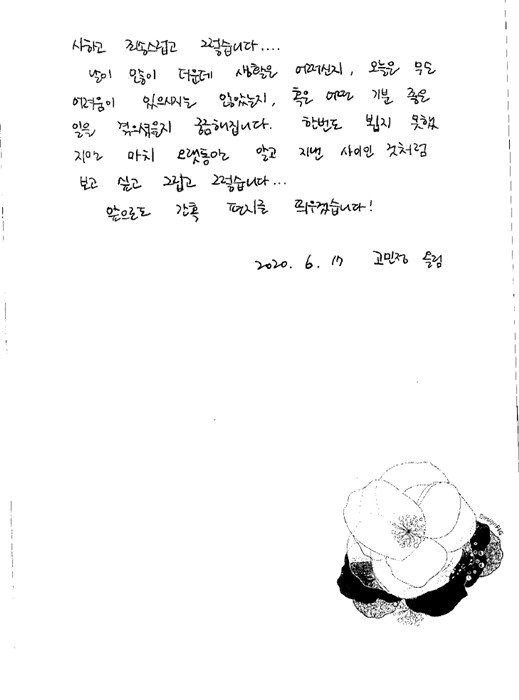 사하고 죄송스럽고 그렇습니다....
날이 많이 더운데 생활은 어떠신지, 오늘은 무슨
어려움이 있으시지는 않았는지, 혹은 어떤 기분 좋은
일을 겪으셨을지 궁금해집니다. 한번도 뵙지 못했
지만 마치 오랫동안 알고 지낸 사이인 것처럼
보고 싶고 그립고 그렇습니다...
앞으로도 간혹 편지를 띄우겠습니다!
2020. 6. 17 고민정 드림
DesignFIG